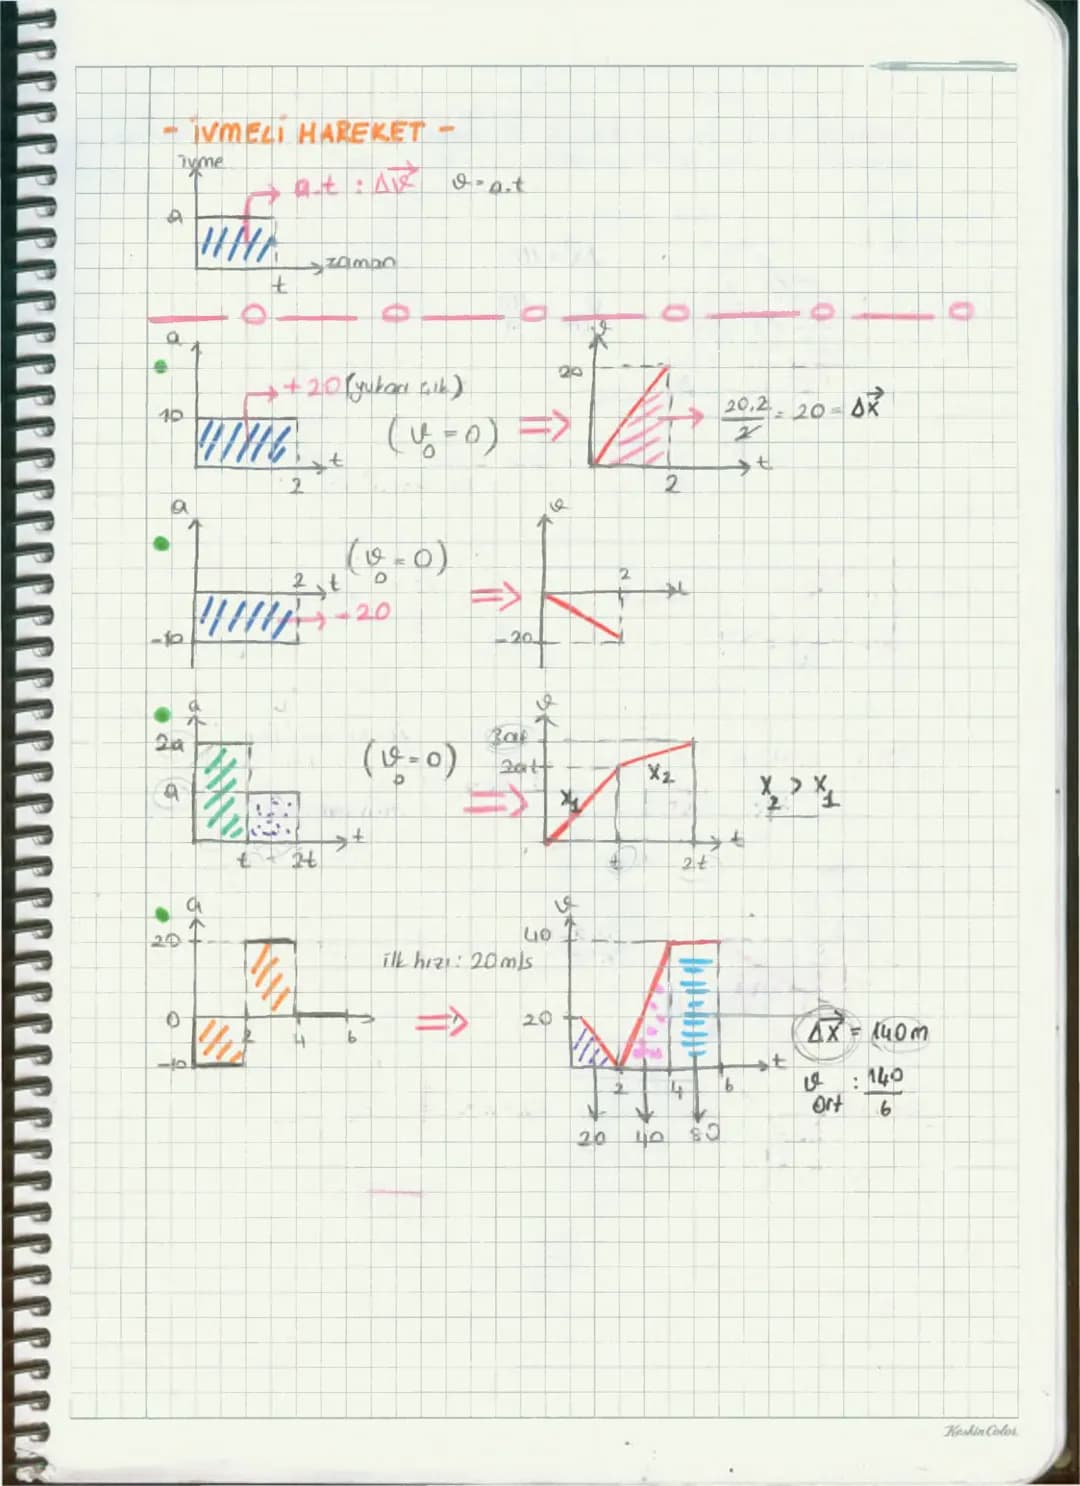 - İVMELİ HAREKET -
ivme
a.t : Δv⃗   v = a.t
a
zaman
t
a
+20 (yukarı çık)
10
(v₀ = 0)
t
2
v
20
20.2/2 = 20 = Δx⃗
t
2
a
(v₀ = 0)
2 t
-20
-10
v
2
t
-20
a
2a
a
(v₀ = 0)
t
t 2t
v
3at
2at
x₁ x₂
t
t 2t
x₂ > x₁
a
20
0
-10
2 4 6
ilk hızı: 20m/s
v
40
20
t
2 4 6
20 40 80
Δx⃗ = 140m
v ort : 140/6
Keskin Color